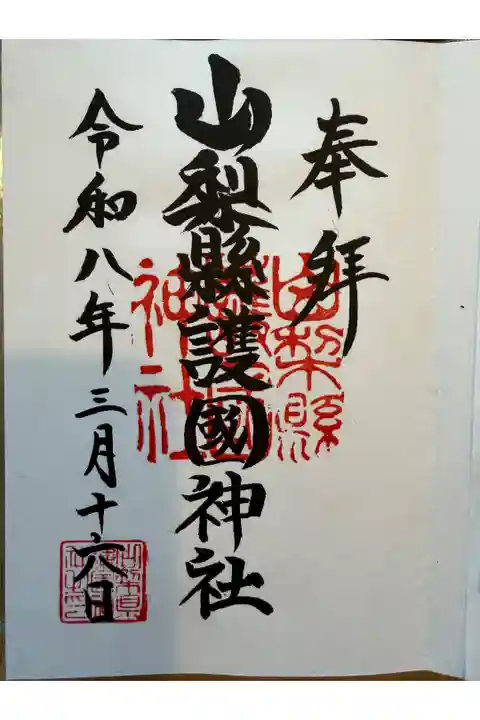 奉拝
山梨縣護國神社
山梨縣
護國
神社
令和八年三月十六日